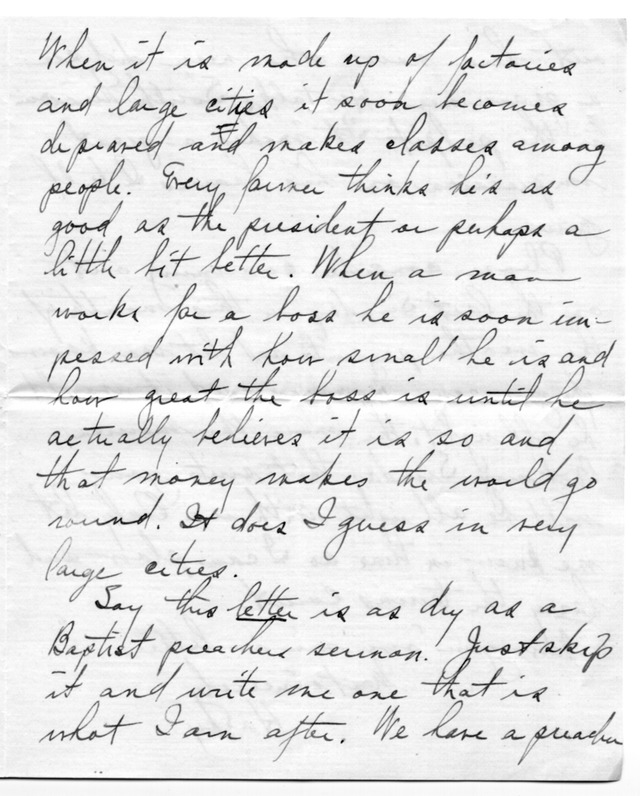 When it is made up of factories
and large cities it soon becomes
depraved and makes classes among
people. Every farmer thinks he's as
good as the president or perhaps a
little bit better. When a man
works for a boss he is soon im-
pressed with how small he is and
how great the boss is until he
actually believes it is so and
that money makes the world go
round. It does I guess in very
large cities.
Say this letter is as dry as a
Baptist preachers sermon. Just skip
it and write me one that is
what I am after. We have a preacher